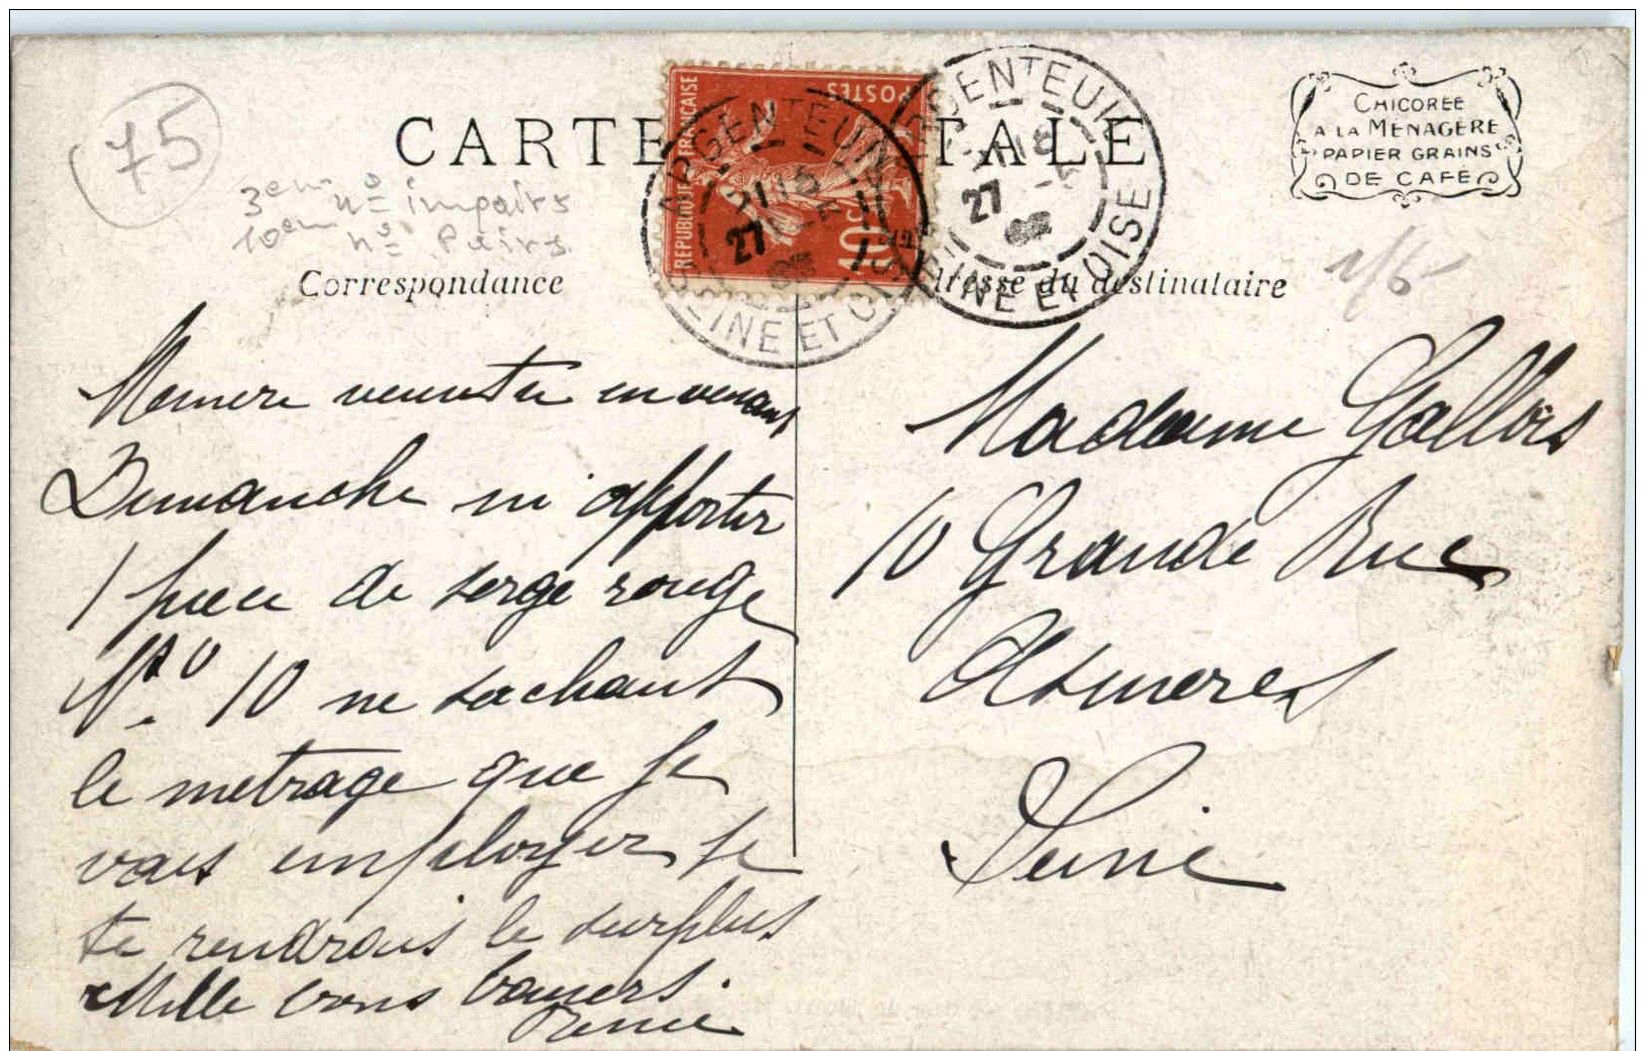 75
CARTE POSTALE
CHICOREE
A LA MENAGERE
PAPIER GRAINS
DE CAFE
3em nº impairs
10em nº Pairs
REPUBLIQUE FRANÇAISE
POSTES
10c
ARGENTEUIL
27
SEINE ET OISE
ARGENTEUIL
27
SEINE ET OISE
Correspondance
Adresse du destinataire
Memere veux tu en venant
Dimanche m apporter
1 piece de serge rouge
Nº 10 ne sachant
le metrage que je
vais employer je
te rendrais le surplus
Mille bons baisers.
Renée
Madame Gallois
10 Grande Rue
Asnieres
Seine